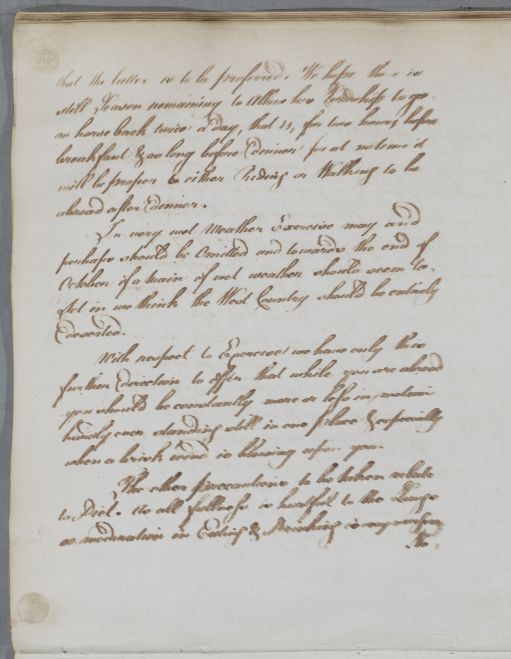 that the latter is to be preferred. We hope there is
still Season remaining to allow his Lordship to go
on horse back twice a day, that is, for two hours before
breakfast & as long before dinner for at no time it
will be proper to either Riding or Walking to be
abroad after dinner.
In very wet Weather Exercise may and
perhaps should be Omitted and towards the end of
October if a train of wet weather should seem to
set in we think the West Country should be entirely
deserted.
With respect to Exercise we have only this
further direction to offer that while you are abroad
you should be constantly more or less in motion
hardly ever standing still in one place & especially
when a brisk wind is blowing upon you.
The other precautions to be taken relate
to Diet. As all fullness is hurtful to the Lungs
so moderation in Eating & Drinking is very necessary